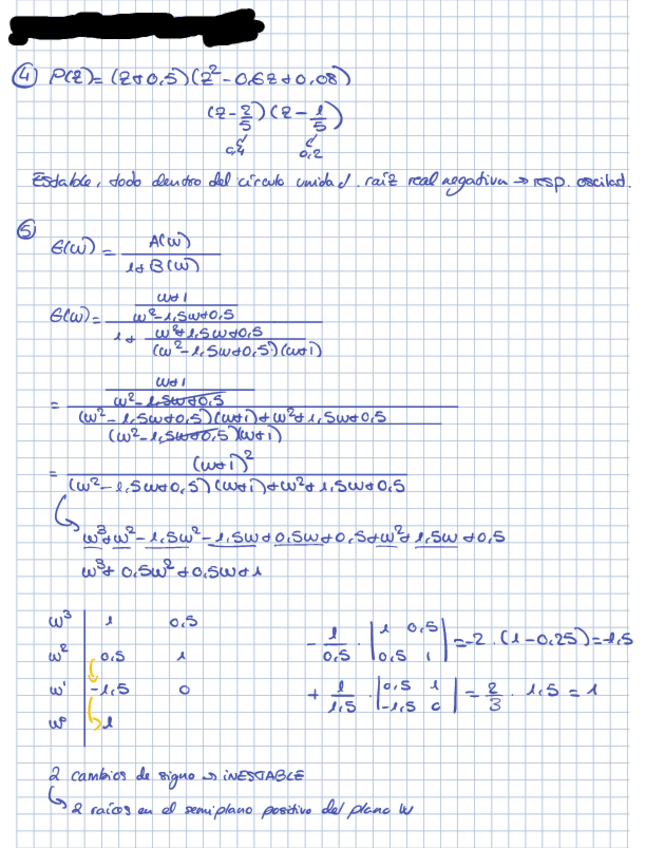 ④ P(z) = (z+0,5)(z² - 0,6z+0,08)
(z - 2/5)(z - 1/5)
0,4 0,2
Estable, todo dentro del círculo unidad. raíz real negativa → resp. oscilat.
⑤
G(w) = A(w) / (1+B(w))
G(w) = ((w+1) / (w²-1,5w+0,5)) / (1 + (w²+1,5w+0,5) / ((w²-1,5w+0,5)(w+1)))
= ((w+1) / (w²-1,5w+0,5)) / (((w²-1,5w+0,5)(w+1)+w²+1,5w+0,5) / ((w²-1,5w+0,5)(w+1)))
= (w+1)² / ((w²-1,5w+0,5)(w+1)+w²+1,5w+0,5)
w³+w²-1,5w²-1,5w+0,5w+0,5+w²+1,5w+0,5
w³+0,5w²+0,5w+1
w³ | 1 0,5
w² | 0,5 1
w¹ | -1,5 0
w⁰ | 1
- 1/0,5 · |1 0,5; 0,5 1| = -2 · (1-0,25) = -1,5
+ 1/1,5 · |0,5 1; -1,5 0| = 2/3 · 1,5 = 1
2 cambios de signo → INESTABLE
↳ 2 raíces en el semiplano positivo del plano W